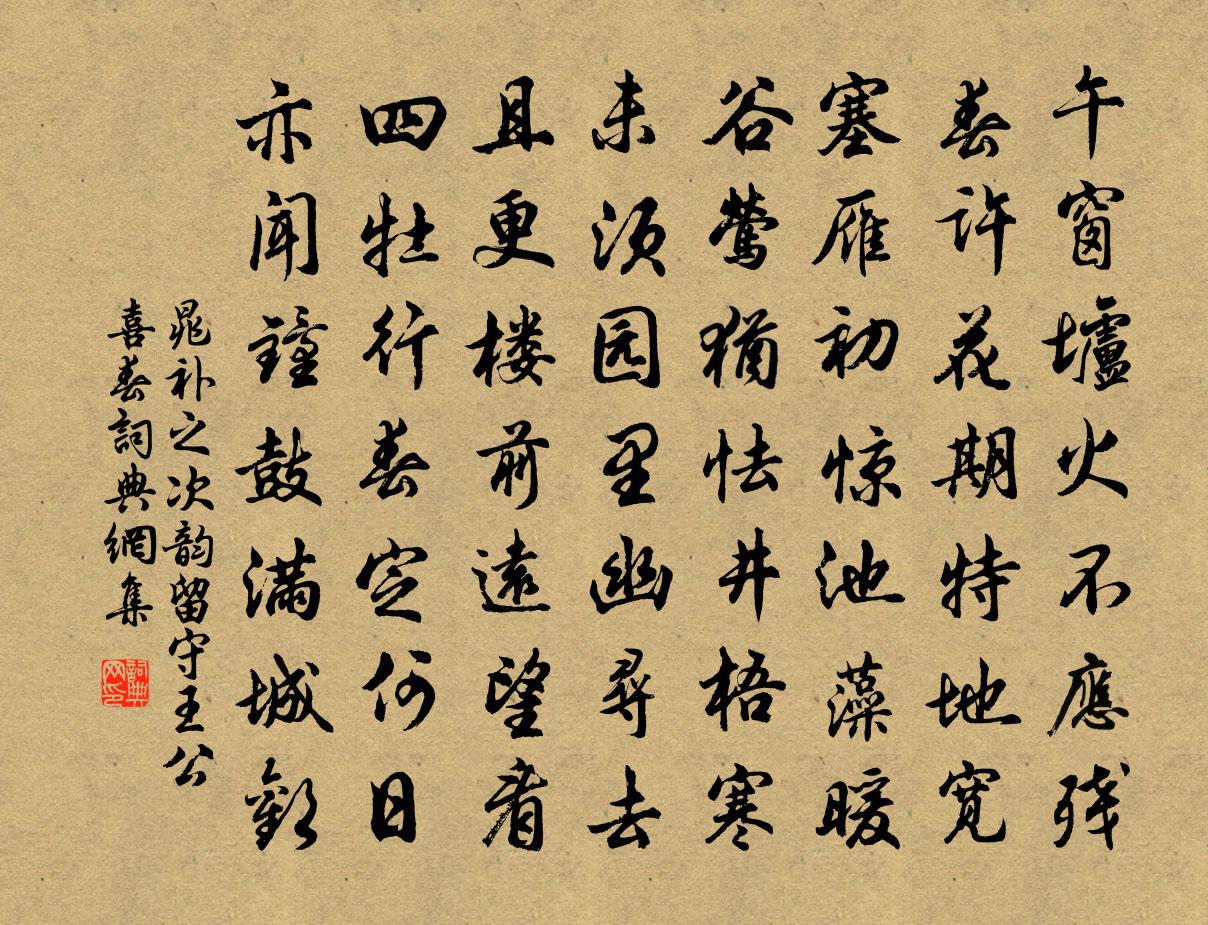 午窗壚火不應残
春许花期特地宽
塞雁初惊池藻暖
谷莺犹怯井梧寒
未须园里幽尋去
且更楼前遠望看
四牡行春定何日
亦闻鐘鼓满城歡
晁补之次韵留守王公
喜春詞典網集
詞典网印